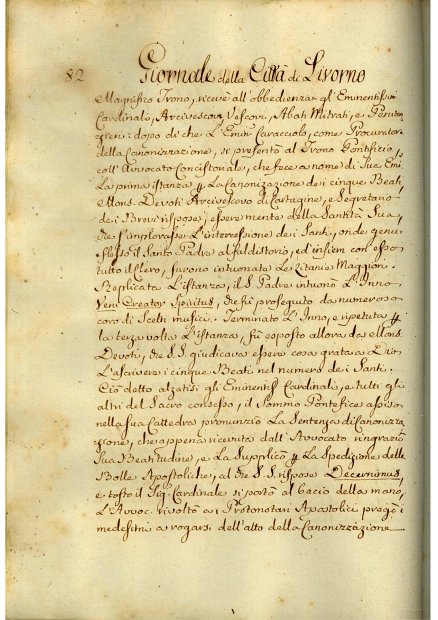 82
Giornale della Città di Livorno
Magnifico Trono, ricevè all'obbedienza gl'Eminentissimi
Cardinali, Arcivescovi, Vescovi, Abati Mitrati, e Peniten
zieri: dopo di che L'Emin: Caracciolo, come Procurator
della Canonizzazione, si presentò al Trono Pontificio,
coll'Avvocato Concistoriale, che fece a nome di Sua Emi
La prima istanza La Canonizazione dei cinque Beati,
e Mons. Devoti Arcivescovo di Cartagine, e Segretario
dei Brevi rispose, essere mente della Santità Sua,
che s'implorasse L'intercessione dei Santi, onde genu
flesso il Santo Padre al faldistorio, ed insiem con esso
tutto il Clero, furono intuonate Le Litanie Maggiori.
Replicata L'istanza, il S. Padre intuonò L'Inno
Veni Creator Spiritus, che fu proseguito da numeroso
coro di Scelti musici. Terminato L'Inno, e ripetuta
la terza volta L'istanza, fù esposto allora da Mons.
Devoti, che S.S. giudicava essere cosa grata a Dio
L'ascrivere i cinque Beati nel numero dei Santi.
Ciò detto alzatisi gli Eminentiss. Cardinali, e tutti gli
altri del Sacro consesso, il Sommo Pontefice assiso
nella sua Cattedra pronunziò La Sentenza di Canoniz
zazione, che appena ricevuta dall'Avvocato ringraziò
Sua Beatitudine, e La Supplicò La Spedizione delle
Bolle Apostoliche, al che S.S. rispose Decernimus,
e tosto il Sig. Cardinale si portò al bacio della mano,
L'Avvoc. rivolto ai Protonotari Apostolici pregò i
medesimi a rogarsi dell'atto della Canonizzazione